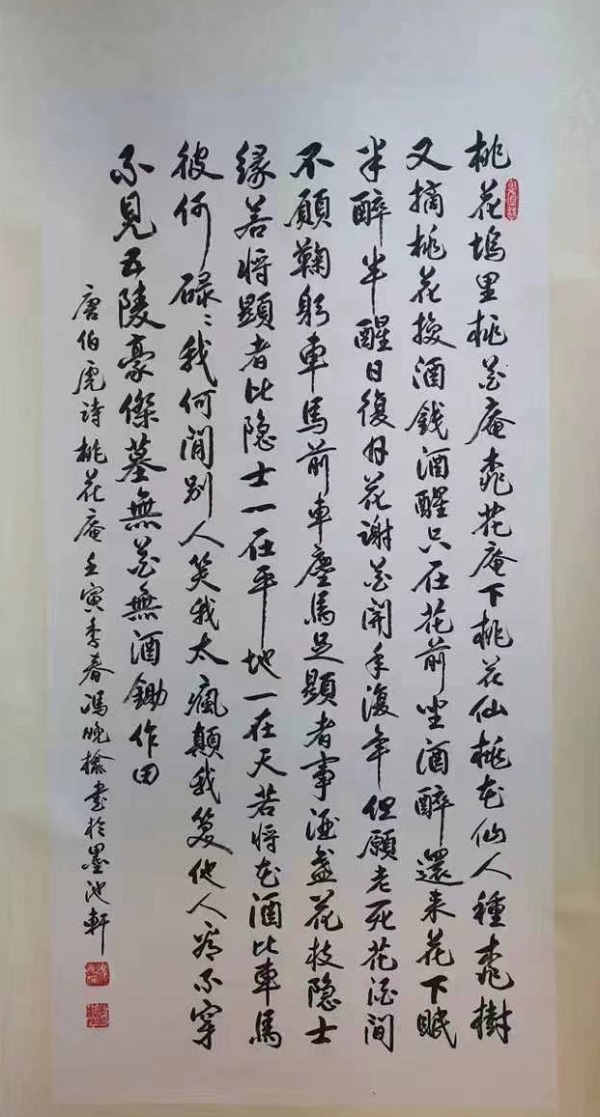 桃花塢里桃花庵桃花庵下桃花仙桃花仙人種桃樹
又摘桃花換酒錢酒醒只在花前坐酒醉還来花下眠
半醉半醒日復日花謝花開年復年但願老死花酒間
不願鞠躬車馬前車塵馬足顯者事酒盞花枝隐士
緣若將顯者比隐士一在平地一在天若將花酒比車馬
彼何碌々我何閒别人笑我太瘋顛我笑他人看不穿
不見五陵豪傑墓無花無酒鋤作田
唐伯虎詩桃花庵壬寅季春馮晚書於墨池軒